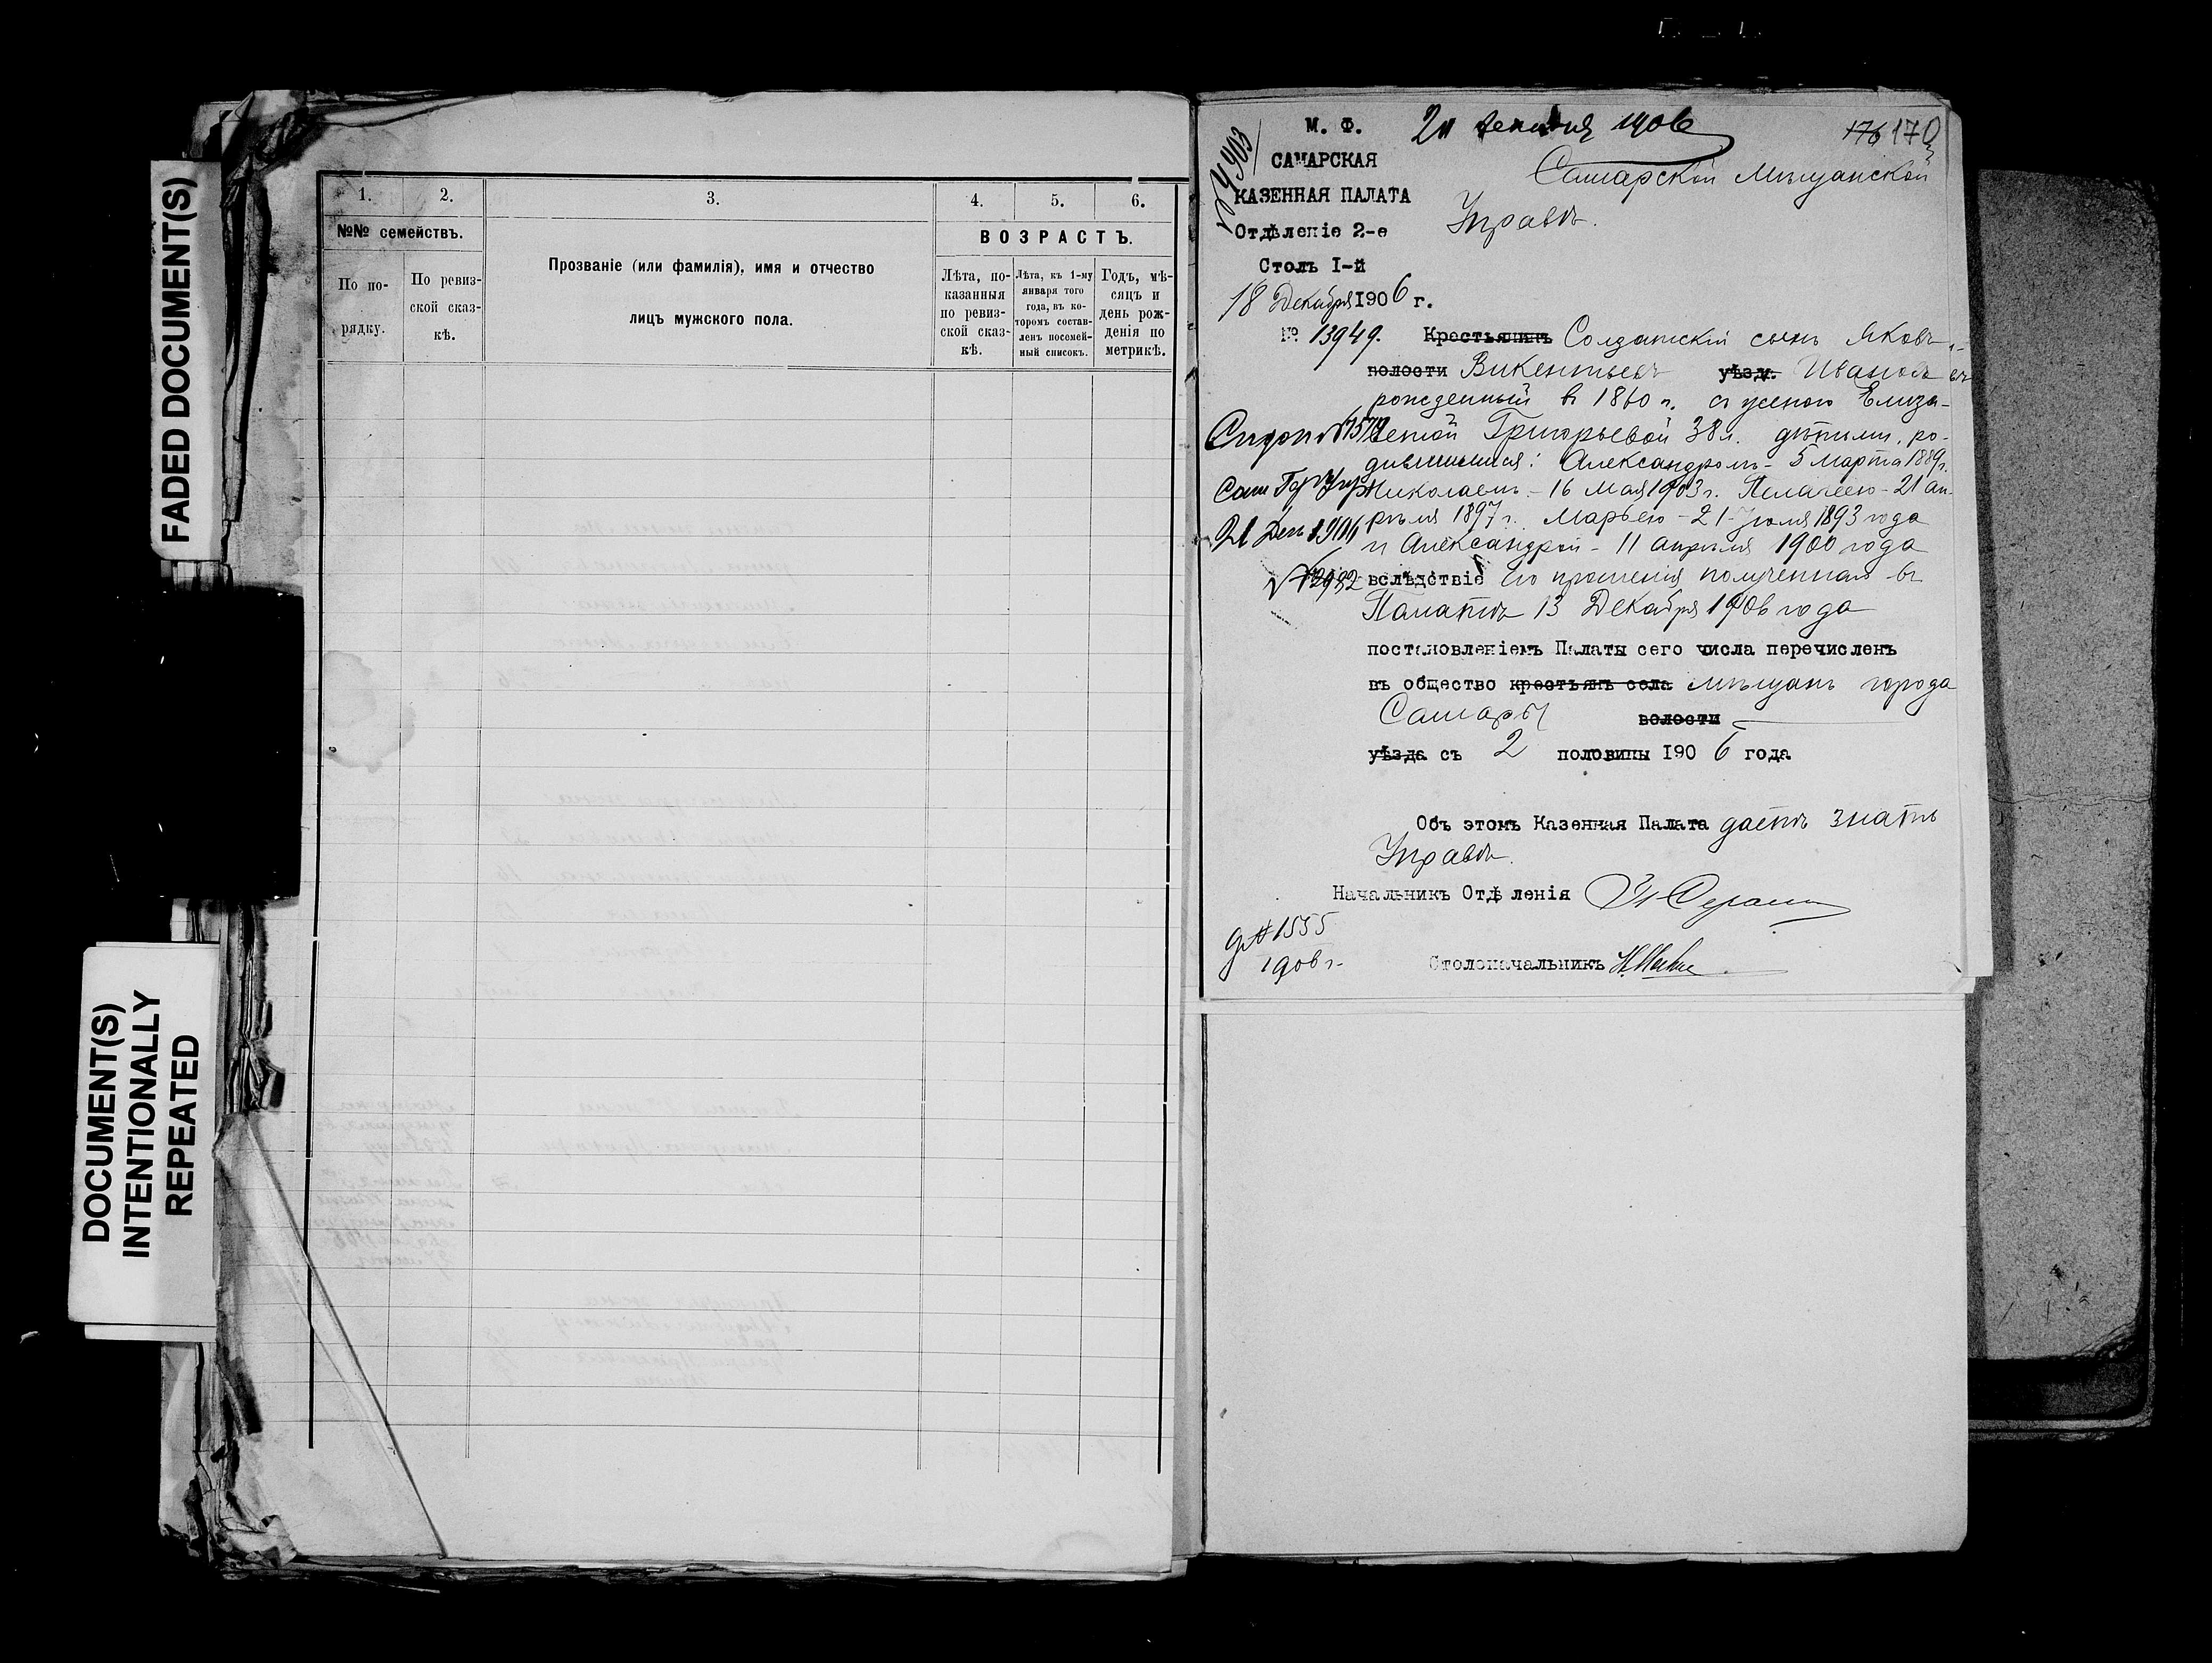 FADED DOCUMENT(S)
DOCUMENT(S)
INTENTIONALLY
REPEATED
1.
2.
3.
4.
5.
6.
№№ семействъ.
ВОЗРАСТЪ.
По по-
рядку.
По ревиз-
ской сказ-
кѣ.
Прозваніе (или фамилія), имя и отчество
лицъ мужского пола.
Лѣта, по-
казанныя
по ревиз-
ской сказ-
кѣ.
Лѣта, къ 1-му
января того
года, въ ко-
торомъ состав-
ленъ посемей-
ный списокъ.
Годъ, мѣ-
сяцъ и
день рож-
денія по
метрикѣ.
М. Ф.
1906
176 170
САМАРСКАЯ
КАЗЕННАЯ ПАЛАТА
Отдѣленіе 2-е
Столъ I-й
18 Декабря 1906 г.
№ 13949.
Самарской Мѣщанской
Управѣ.
Крестьянинъ Солдатскій сынъ Яковъ
волости Викентьевъ уѣзда Ивановъ
рожденный въ 1860 г. съ женою Елиза-
ветой Григорьевой 38 л. дѣтьми, ро-
дившимися: Александромъ - 5 Марта 1889 г.
Николаемъ - 16 Мая 1903 г. Пелагеею - 21 ап-
рѣля 1897 г. Марьею - 21 Іюля 1893 года
и Александрой - 11 апрѣля 1900 года
вслѣдствіе его прошенія полученнаго въ
Палатѣ 13 Декабря 1906 года
постановленіемъ Палаты сего числа перечисленъ
въ общество крестьянъ села мѣщанъ города
Самары волости
уѣзда съ 2 половины 1906 года
Объ этомъ Казенная Палата даетъ знать
Управѣ.
Начальникъ Отдѣленія
Столоначальникъ
№ 1555
1906 г.